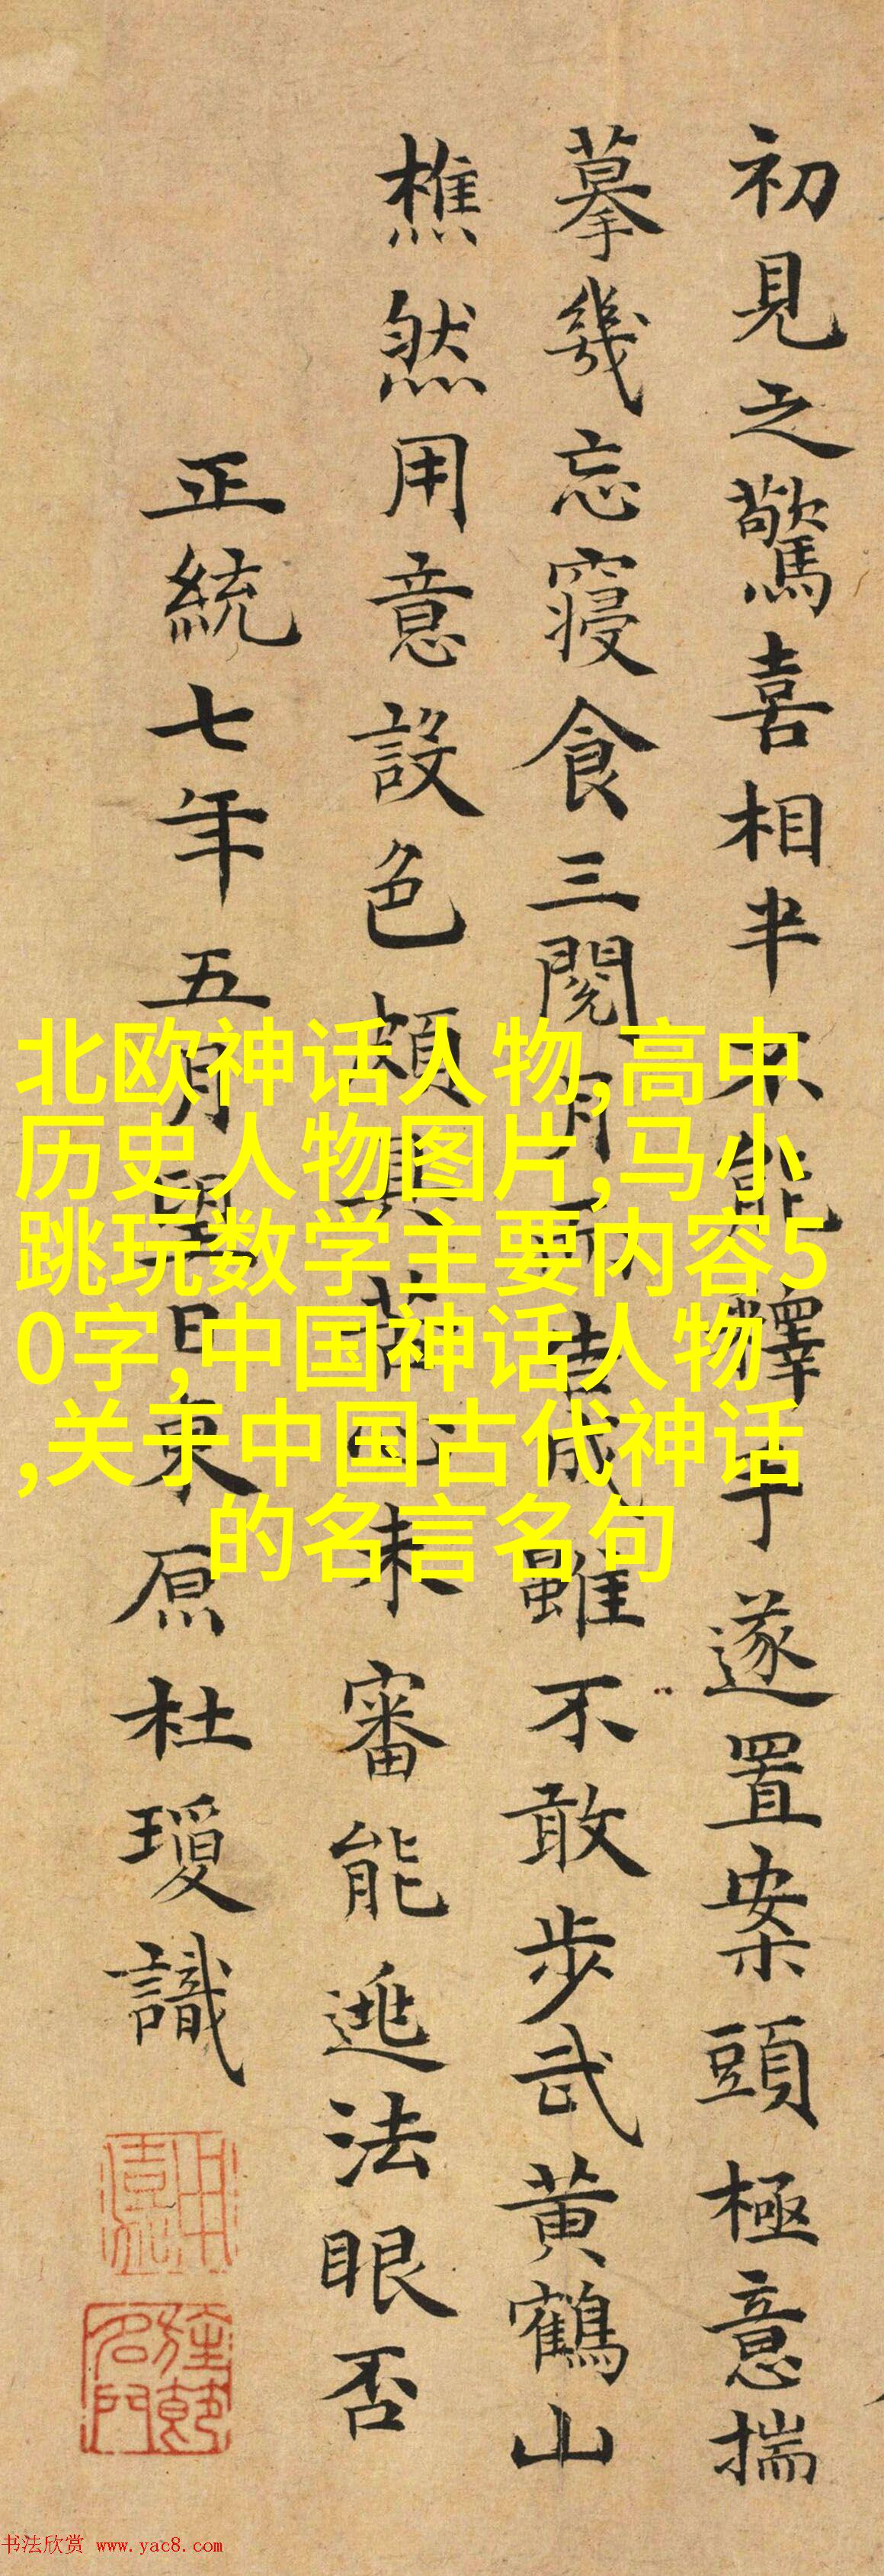 初見之驚喜相半不能釋手遂置案頭極意揣
摹幾忘寢食三閱月而告成雖不敢步武黃鶴山
樵然用意設色頗具苦心未審能逃法眼否
正統七年五月望日東原杜瓊識
北欧神话人物,高中
历史人物图片,马小
跳玩数学主要内容5
0字,中国神话人物
,关于中国古代神话
的名言名句
书法欣赏 www.yac8.com